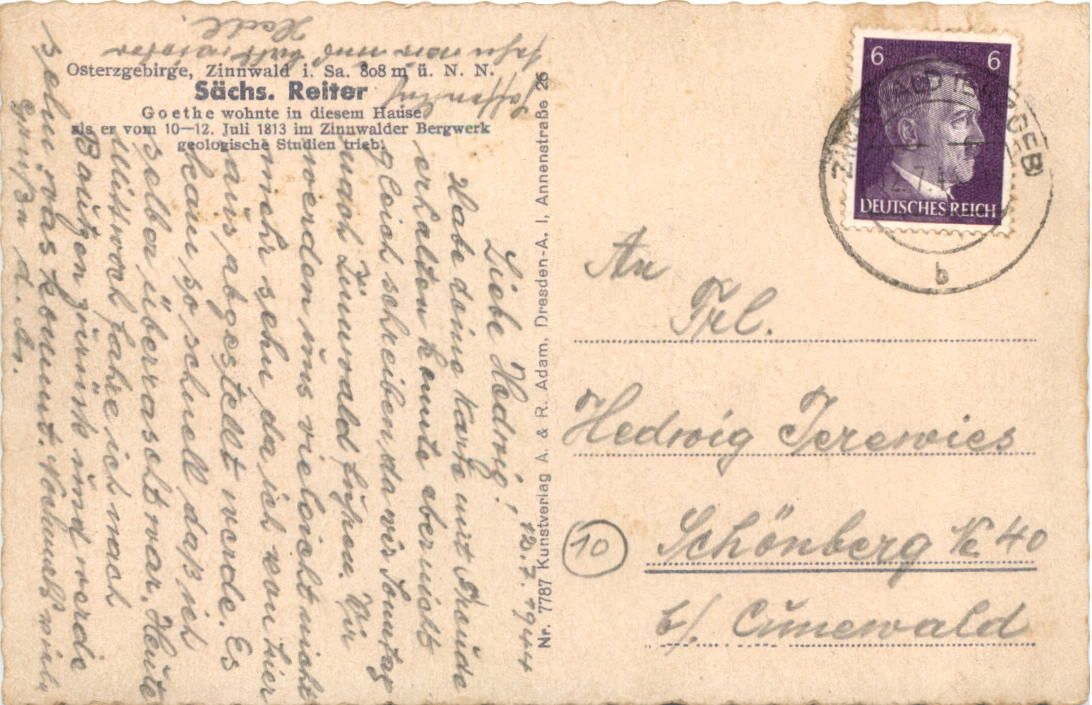 Osterzgebirge, Zinnwald i. Sa. 808 m ü. N. N.
Sächs. Reiter
Goethe wohnte in diesem Hause
als er vom 10—12. Juli 1813 im Zinnwalder Bergwerk
geologische Studien trieb.
12.7.1944
Liebe Hedwig!
Habe deine Karte mit Freude
erhalten konnte aber nicht
gleich schreiben, da wir Sonntag
nach Zinnwald fuhren. Wir
werden uns vieleicht nicht
mehr sehn da ich von hier
aus, abgestellt werde. Es
kam so schnell daß ich
selber überrascht war. Heute
Mittwoch fahre ich nach
Bautzen zurück und werde
sehn was kommt. Nochmals viele
Grüße d.
Nr. 7787 Kunstverlag A. & R. Adam, Dresden-A. I, Annenstraße 25
6 6
DEUTSCHES REICH
b
An
Frl.
Hedwig Jerewies
10
Schönberg No 40
b/. Cunewald